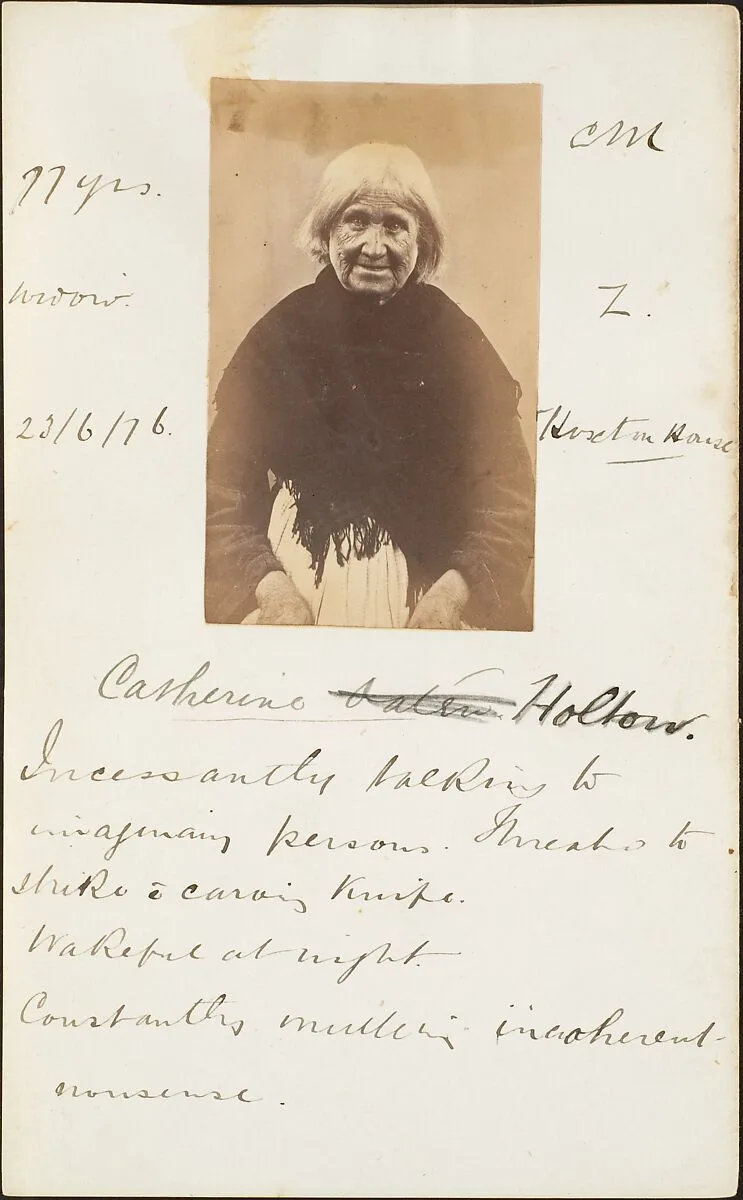 CM
77 yrs.
Widow.
Z.
23/6/76.
Hoxton House
Catherine Holton.
Incessantly talking to
imaginary persons. Threatens to
strike c̄ carving Knife.
Wakeful at night.
Constantly muttering incoherent
nonsense.